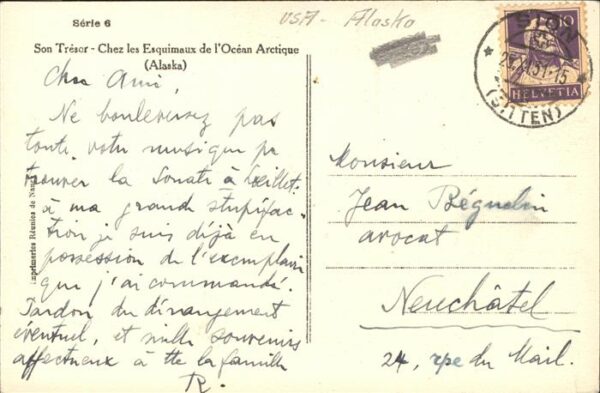 Série 6
USA - Alaska
Son Trésor - Chez les Esquimaux de l'Océan Arctique
(Alaska)
Cher Ami,
Ne bouleversez pas
toute votre musique pr
trouver la Sonate à
à ma grande stupéfac-
tion je suis déjà en
possession de l'exemplaire
que j'ai commandé.
Pardon du dérangement
éventuel, et mille souvenirs
affectueux à tte la famille
R.
Imprimeries Réunies de Nancy
10
HELVETIA
SION
(SITTEN)
Monsieur
Jean Béguelin
avocat
Neuchâtel
24, rue du Mail.